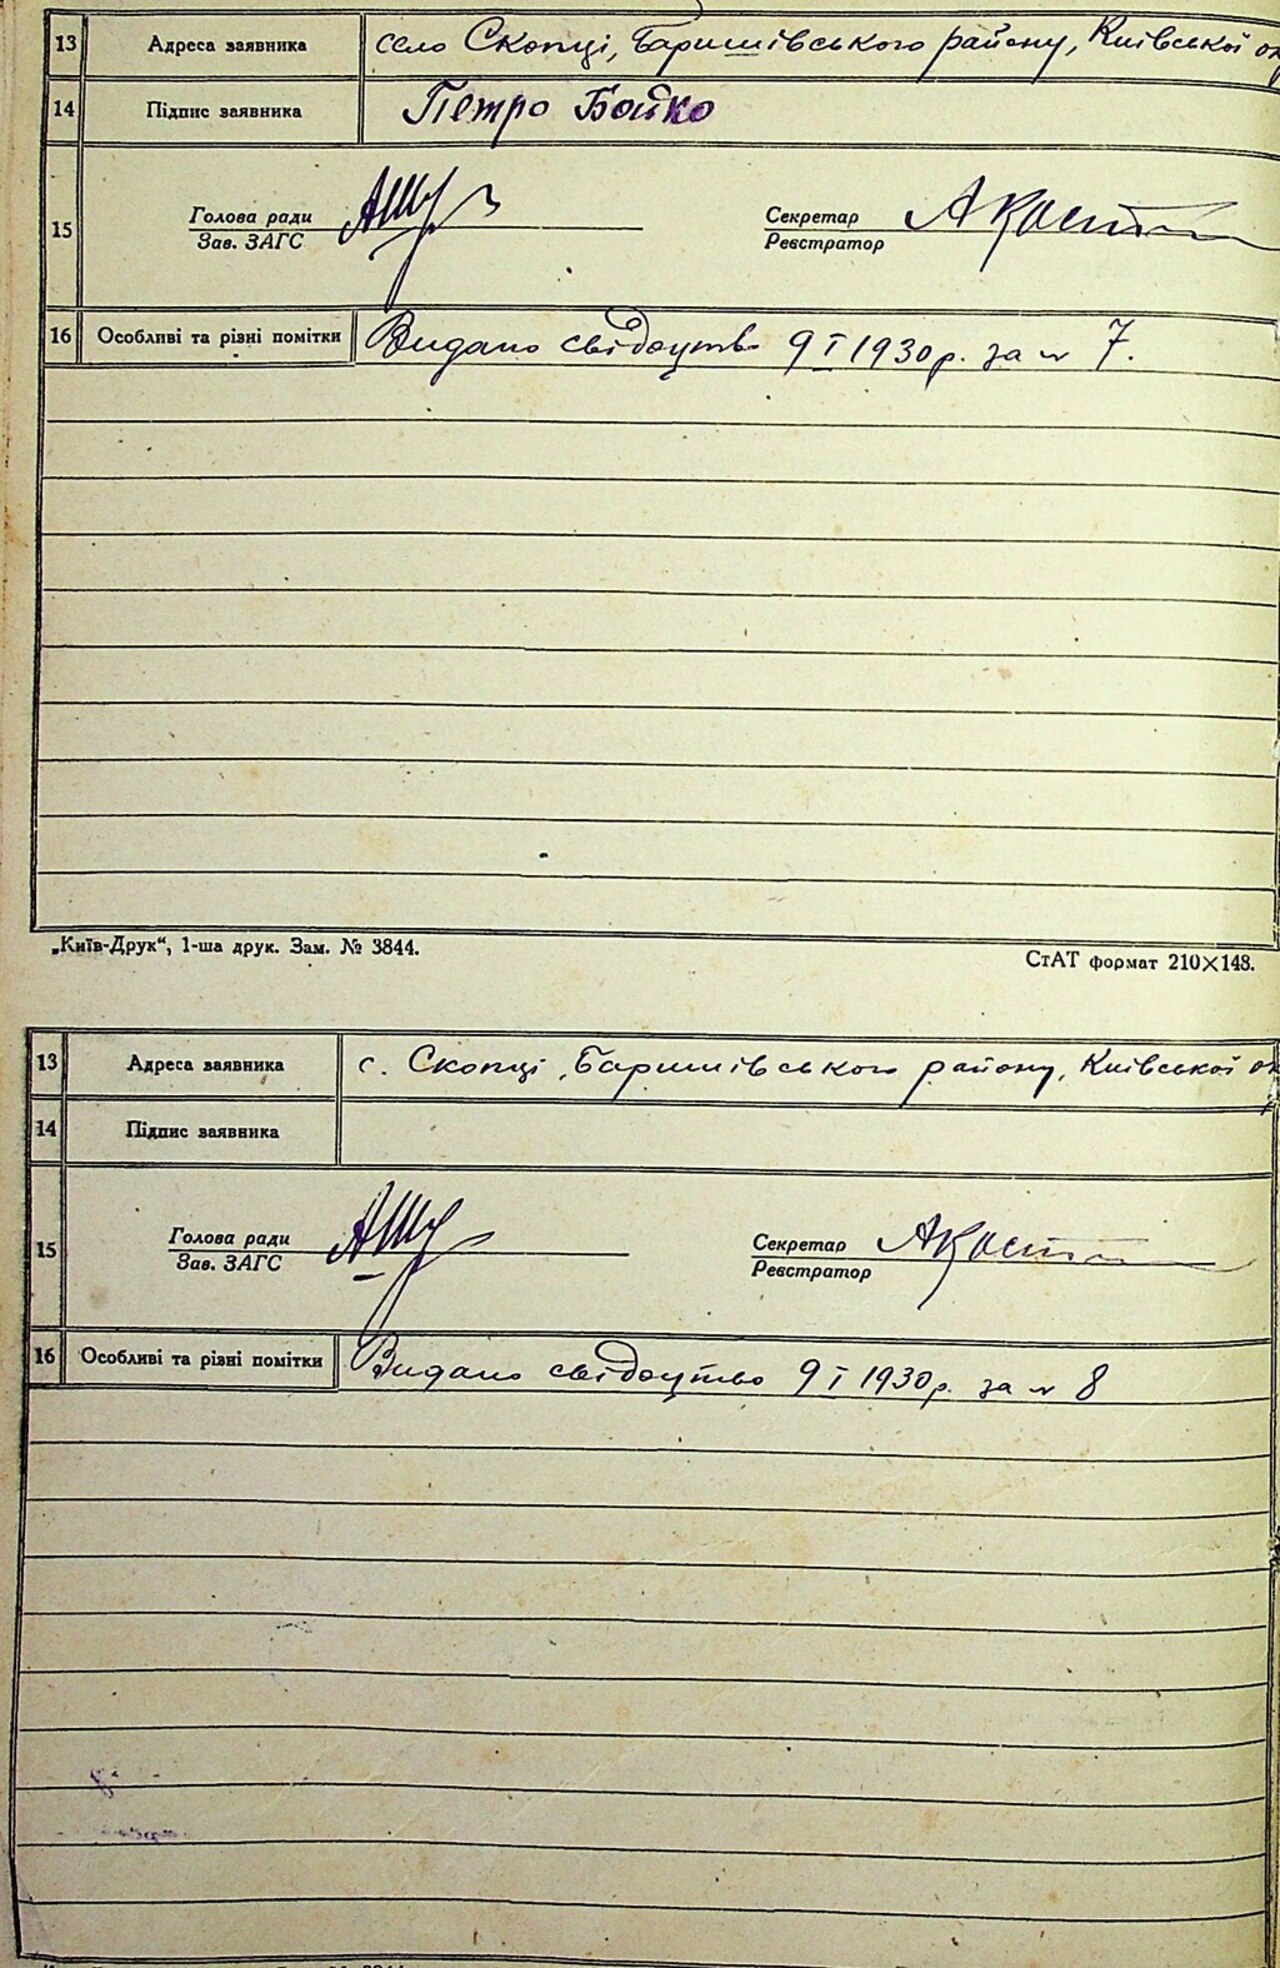 13 Адреса заявника село Скопці, Баришівського району, Київської ок
14 Підпис заявника Петро Бойко
15 Голова ради Секретар
Зав. ЗАГС Реєстратор
16 Особливі та різні помітки Видано свідоцтво 9 I 1930 р. за № 7.
„Київ-Друк“, 1-ша друк. Зам. № 3844. СтАТ формат 210×148.
13 Адреса заявника с. Скопці, Баришівського району, Київської ок
14 Підпис заявника
15 Голова ради Секретар
Зав. ЗАГС Реєстратор
16 Особливі та різні помітки Видано свідоцтво 9 I 1930 р. за № 8